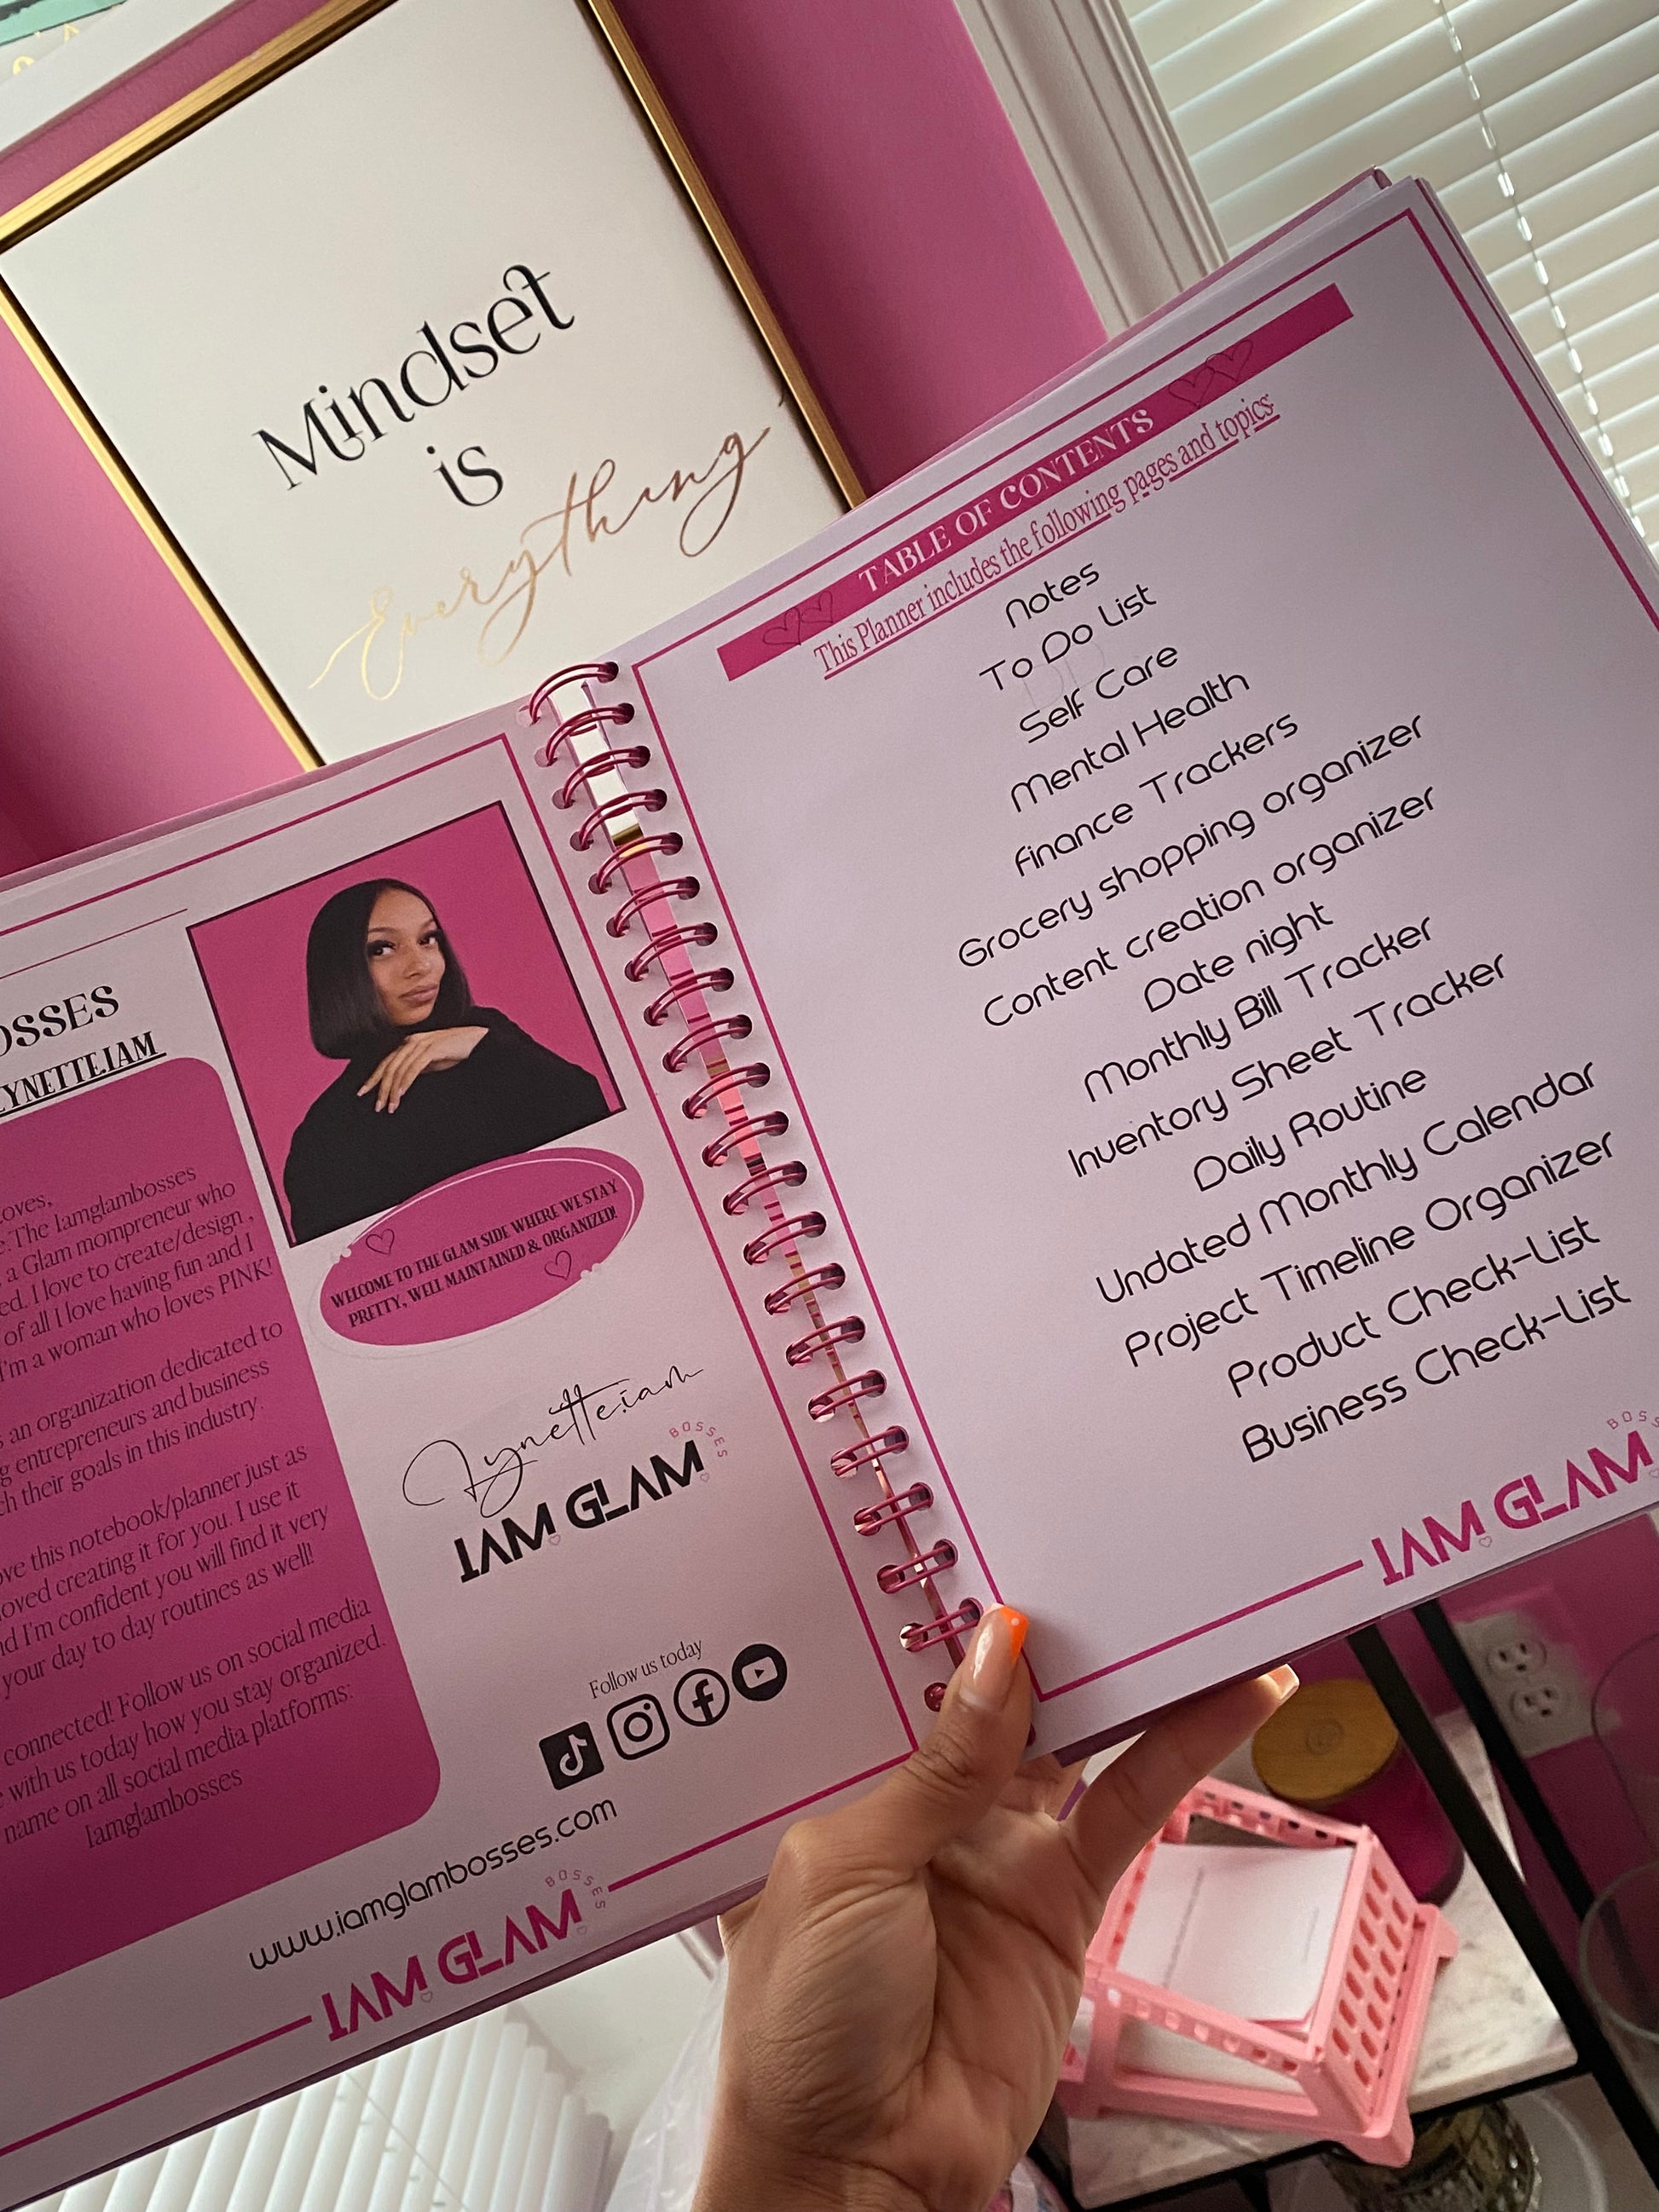 Mindset
is
Everything
OSSES
LYNETTE.IAM
oves,
The Iamglambosses
a Glam mompreneur who
ed. I love to create/design ,
of all I love having fun and I
I'm a woman who loves PINK!
an organization dedicated to
g entrepreneurs and business
ch their goals in this industry.
ove this notebook/planner just as
loved creating it for you. I use it
nd I'm confident you will find it very
your day to day routines as well!
connected! Follow us on social media
with us today how you stay organized.
name on all social media platforms:
Iamglambosses
WELCOME TO THE GLAM SIDE WHERE WE STAY
PRETTY, WELL MAINTAINED & ORGANIZED!
Lynette.iam
I AM GLAM
BOSSES
Follow us today
www.iamglambosses.com
I AM GLAM
BOSSES
TABLE OF CONTENTS
This Planner includes the following pages and topics:
Notes
To Do List
Self Care
Mental Health
Finance Trackers
Grocery shopping organizer
Content creation organizer
Date night
Monthly Bill Tracker
Inventory Sheet Tracker
Daily Routine
Undated Monthly Calendar
Project Timeline Organizer
Product Check-List
Business Check-List
I AM GLAM
BOSS